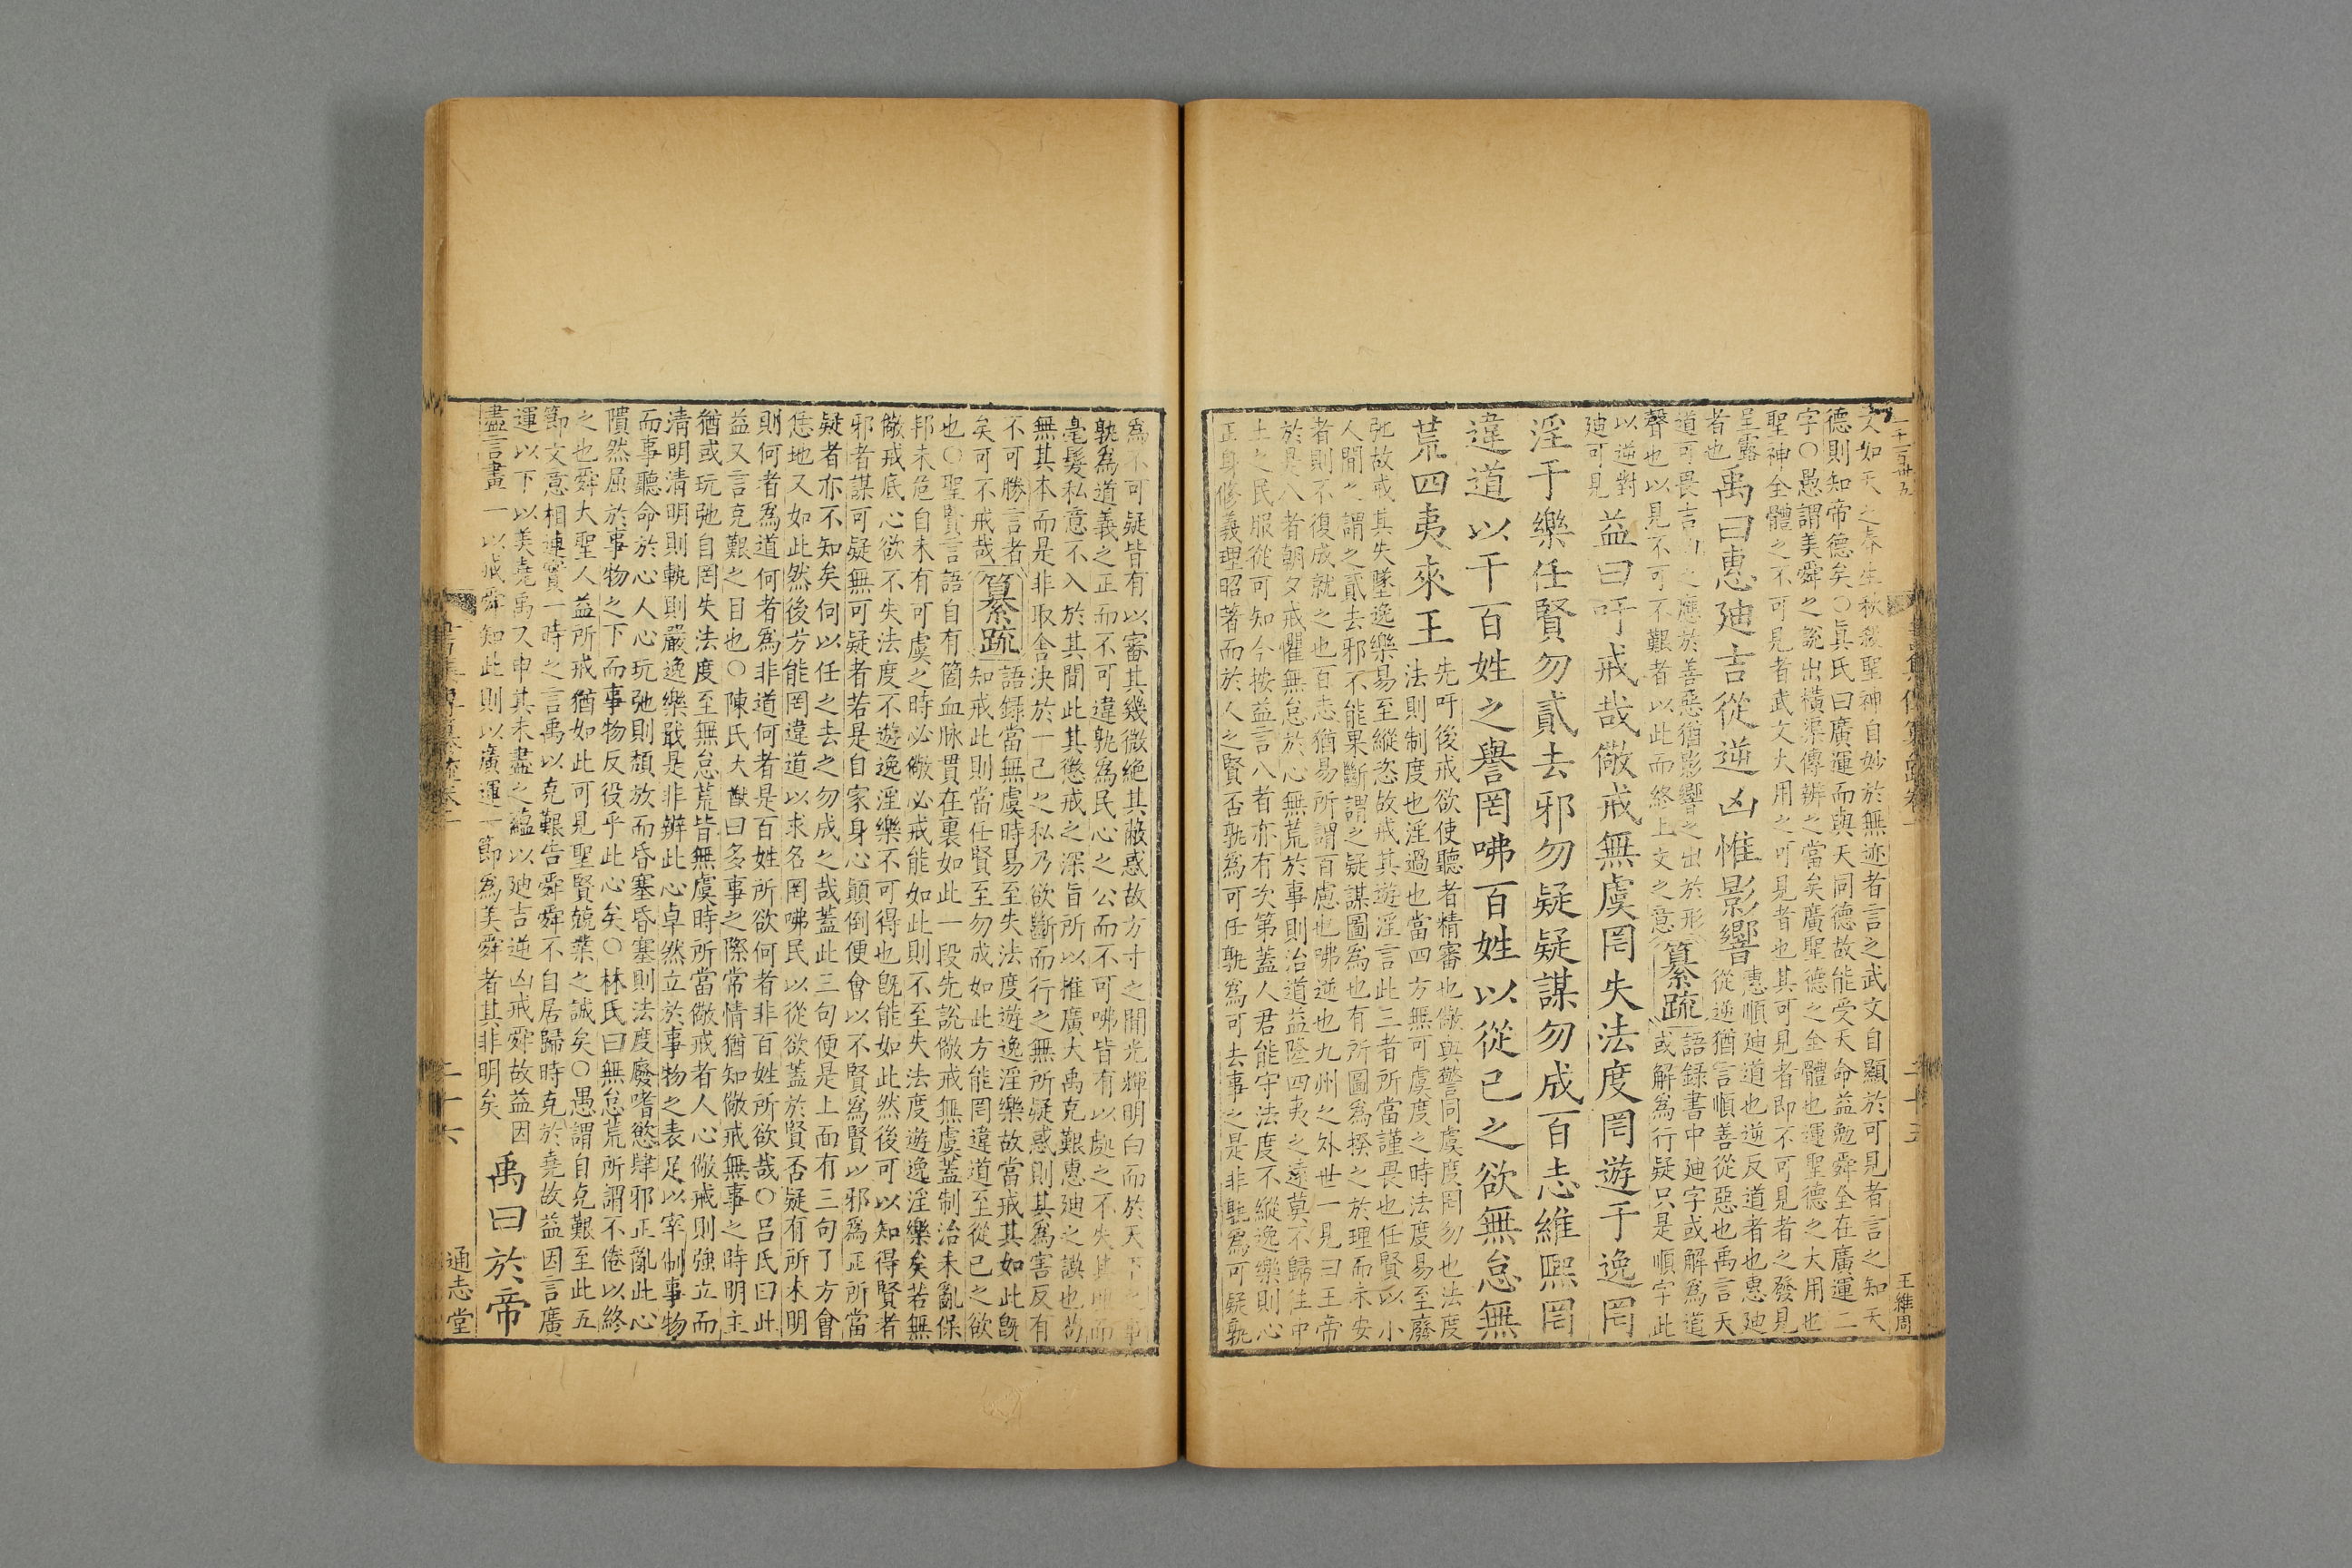 二千一百廿五
王維周
人如天之春生秋殺聖神自妙於無迹者言之武文自顯於可見者言之知天
德則知帝德矣○眞氏曰廣運而與天同德故能受天命益勉舜全在廣運二
字○愚謂美舜之說出橫渠傳辨之當矣廣聖德之全體也運聖德之大用也
聖神全體之不可見者武文大用之可見者也其可見者即不可見者之發見
呈露
者也
禹曰惠迪吉從逆凶惟影響
惠順迪道也逆反道者也惠迪
從逆猶言順善從惡也禹言天
道可畏吉凶之應於善惡猶影響之出於形
聲也以見不可不艱者以此而終上文之意
纂疏
語錄書中迪字或解為道
或解為行疑只是順字此
以逆對
迪可見
益曰吁戒哉儆戒無虞罔失法度罔遊于逸罔
淫于樂任賢勿貳去邪勿疑疑謀勿成百志維熙罔
違道以干百姓之譽罔咈百姓以從己之欲無怠無
荒四夷來王
先吁後戒欲使聽者精審也儆與警同虞度罔勿也法度
法則制度也淫過也當四方無可虞度之時法度易至廢
弛故戒其失墜逸樂易至縱恣故戒其遊淫言此三者所當謹畏也任賢以小
人間之謂之貳去邪不能果斷謂之疑謀圖為也有所圖為揆之於理而未安
者則不復成就之也百志猶易所謂百慮也咈逆也九州之外世一見曰王帝
於是八者朝夕戒懼無怠於心無荒於事則治道益隆四夷之遠莫不歸往中
土之民服從可知今按益言八者亦有次第蓋人君能守法度不縱逸樂則心
正身修義理昭著而於人之賢否孰為可任孰為可去事之是非孰為可疑孰
為不可疑皆有以審其幾微絕其蔽惑故方寸之間光輝明白而於天下之事
孰為道義之正而不可違孰為民心之公而不可咈皆有以處之不失其理而
毫髮私意不入於其間此其懲戒之深旨所以推廣大禹克艱惠迪之謨也苟
無其本而是非取舍決於一己之私乃欲斷而行之無所疑惑則其為害反有
不可勝言者
矣可不戒哉
纂疏
語錄當無虞時易至失法度遊逸淫樂故當戒其如此既
知戒此則當任賢至勿成如此方能罔違道至從己之欲
也○聖賢言語自有箇血脉貫在裏如此一段先說儆戒無虞蓋制治未亂保
邦未危自未有可虞之時必儆必戒能如此則不至失法度遊逸淫樂矣若無
儆戒底心欲不失法度不遊逸淫樂不可得也既能如此然後可以知得賢者
邪者謀可疑無可疑者若是自家身心顛倒便會以不賢為賢以邪為正所當
疑者亦不知矣何以任之去之勿成之哉蓋此三句便是上面有三句了方會
恁地又如此然後方能罔違道以求名罔咈民以從欲蓋於賢否疑有所未明
則何者為道何者為非道何者是百姓所欲何者非百姓所欲哉○呂氏曰此
益又言克艱之目也○陳氏大猷曰多事之際常情猶知儆戒無事之時明主
猶或玩弛自罔失法度至無怠荒皆無虞時所當儆戒者人心儆戒則強立而
清明清明則軌則嚴逸樂戢是非辨此心卓然立於事物之表足以宰制事物
而事聽命於心人心玩弛則頹放而昏塞昏塞則法度廢嗜慾肆邪正亂此心
隤然屈於事物之下而事物反役乎此心矣○林氏曰無怠荒所謂不倦以終
之也舜大聖人益所戒猶如此可見聖賢兢業之誠矣○愚謂自克艱至此五
節文意相連實一時之言禹以克艱告舜舜不自居歸時克於堯故益因言廣
運以下以美堯禹又申其未盡之蘊以迪吉逆凶戒舜故益因
盡言畫一以戒舜知此則以廣運一節為美舜者其非明矣
禹曰於帝
二十六
通志堂